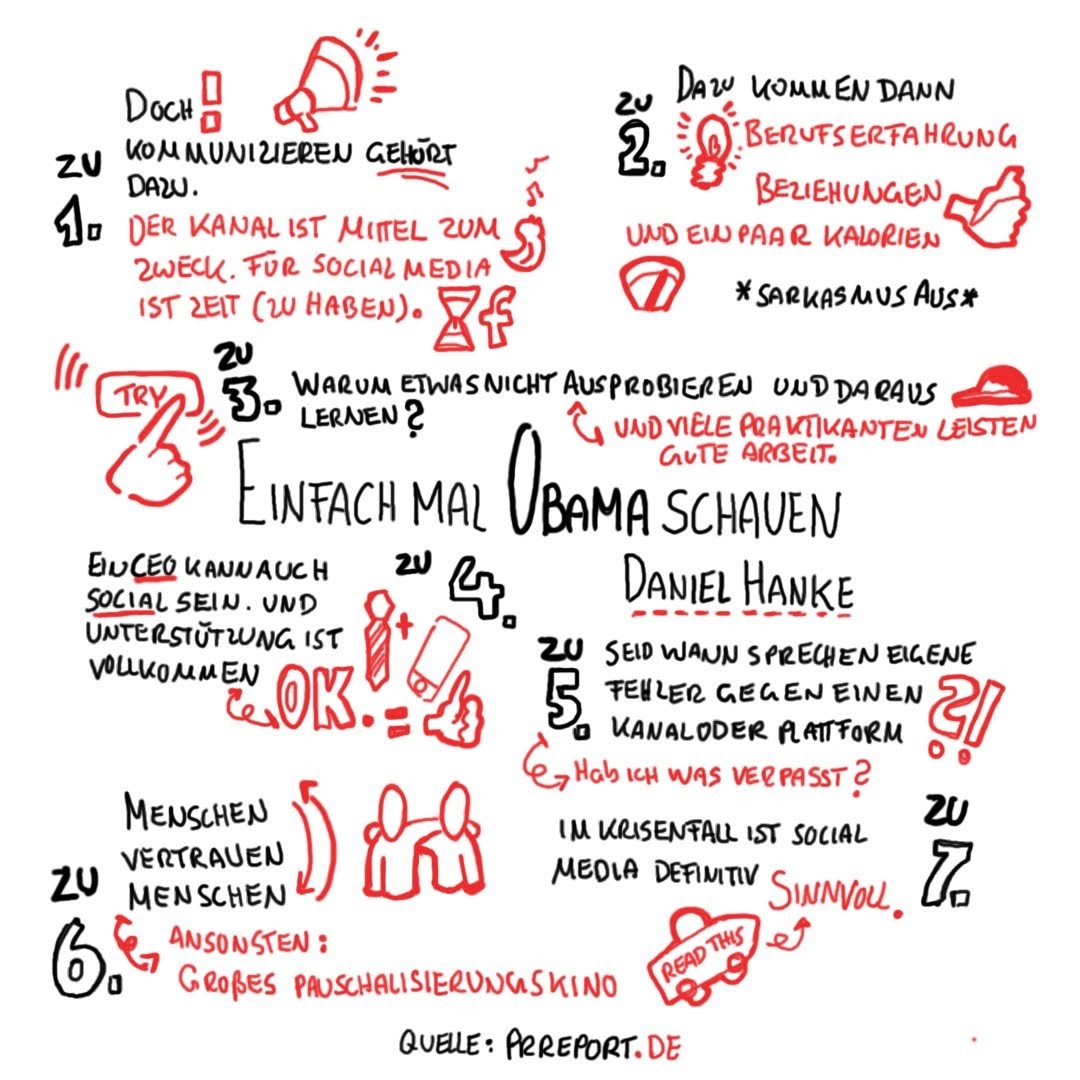 ZU
1.
DOCH!
KOMMUNIZIEREN GEHÖRT
DAZU.
DER KANAL IST MITTEL ZUM
ZWECK. FÜR SOCIAL MEDIA
IST ZEIT (ZU HABEN).
f
ZU
2.
DAZU KOMMEN DANN
BERUFSERFAHRUNG
BEZIEHUNGEN
UND EIN PAAR KALORIEN
*SARKASMUS AUS*
TRY
ZU
3.
WARUM ETWAS NICHT AUSPROBIEREN UND DARAUS
LERNEN?
UND VIELE PRAKTIKANTEN LEISTEN
GUTE ARBEIT.
EINFACH MAL OBAMA SCHAUEN
DANIEL HANKE
ZU
4.
EIN CEO KANN AUCH
SOCIAL SEIN. UND
UNTERSTÜTZUNG IST
VOLLKOMMEN
OK.
+
=
ZU
5.
SEID WANN SPRECHEN EIGENE
FEHLER GEGEN EINEN
KANAL ODER PLATTFORM
?!
HAB ICH WAS VERPASST?
ZU
6.
MENSCHEN
VERTRAUEN
MENSCHEN
ANSONSTEN:
GROßES PAUSCHALISIERUNGSKINO
ZU
7.
IM KRISENFALL IST SOCIAL
MEDIA DEFINITIV
SINNVOLL.
READ THIS
QUELLE: PRREPORT.DE